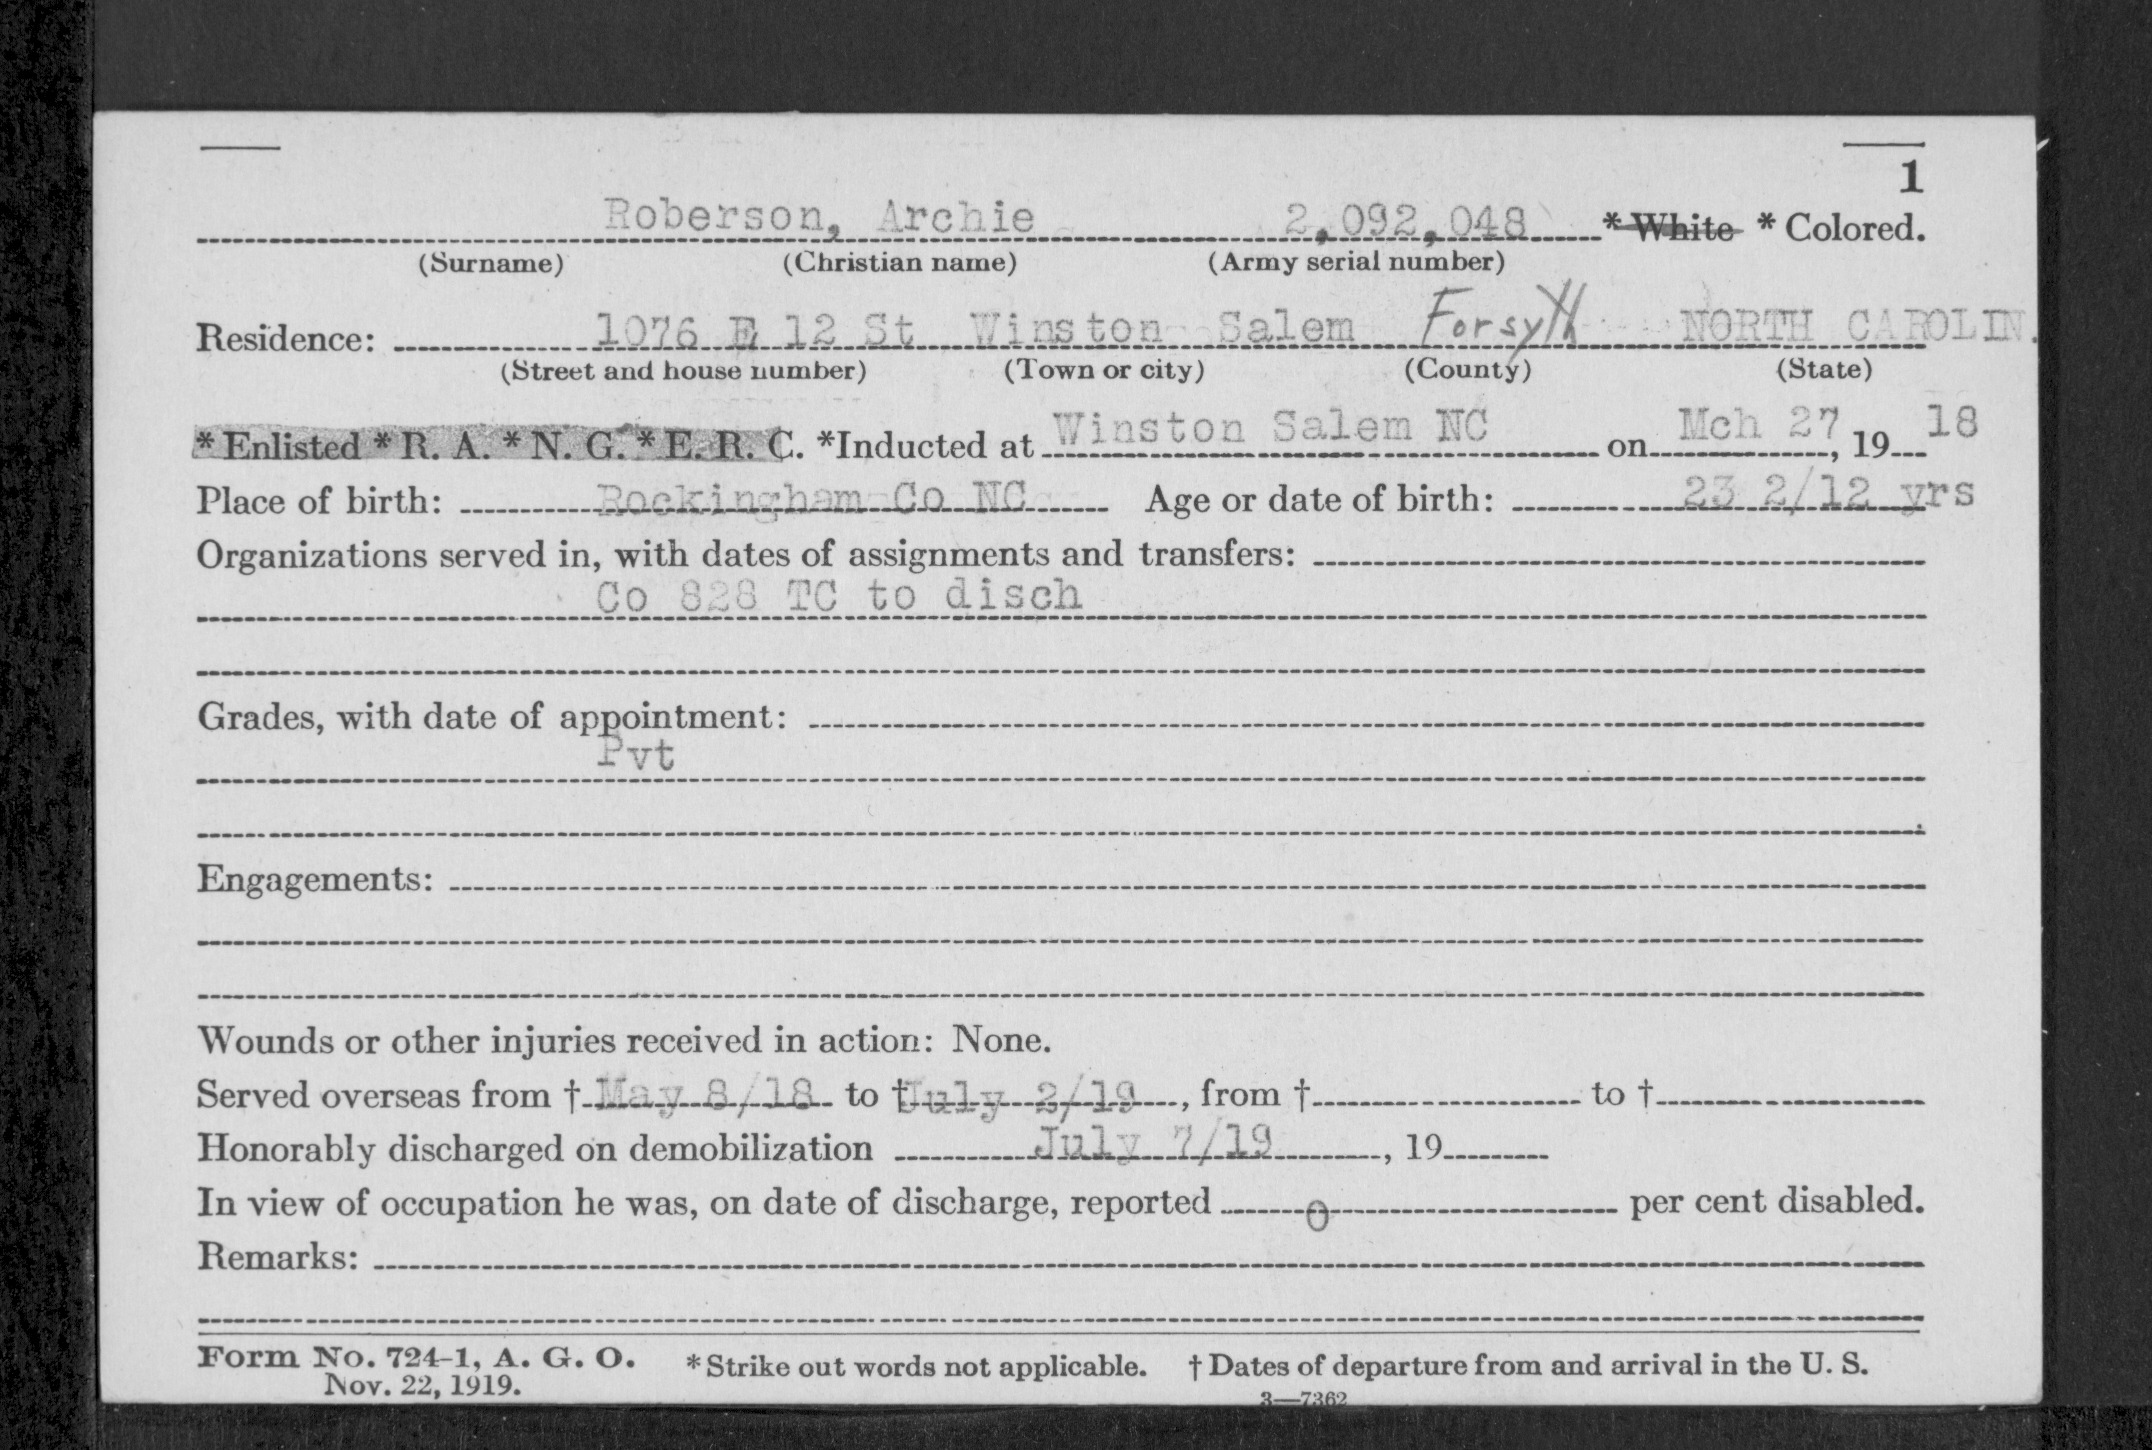 1
Roberson, Archie 2,092,048 * White * Colored.
(Surname) (Christian name) (Army serial number)
Residence: 1076 E 12 St Winston Salem Forsyth NORTH CAROLIN.
(Street and house number) (Town or city) (County) (State)
* Enlisted * R. A. * N. G. * E. R. C. *Inducted at Winston Salem NC on Mch 27, 19 18
Place of birth: Rockingham Co NC Age or date of birth: 23 2/12 yrs
Organizations served in, with dates of assignments and transfers:
Co 828 TC to disch
Grades, with date of appointment:
Pvt
Engagements:
Wounds or other injuries received in action: None.
Served overseas from † May 8/18 to † July 2/19, from † to †
Honorably discharged on demobilization July 7/19, 19
In view of occupation he was, on date of discharge, reported 0 per cent disabled.
Remarks:
Form No. 724-1, A. G. O. * Strike out words not applicable. † Dates of departure from and arrival in the U. S.
Nov. 22, 1919.
3—7362